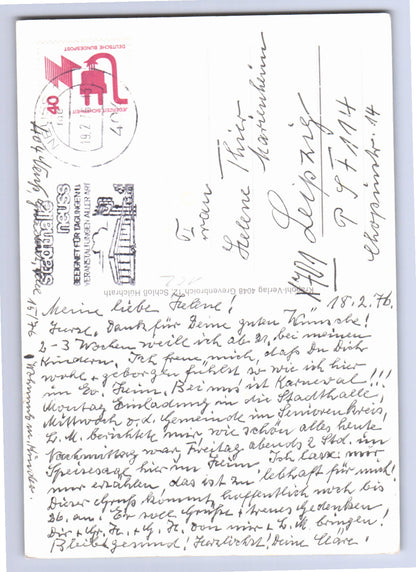 DEUTSCHE BUNDESPOST
JEDERZEIT SICHERHEIT
40
19.2.
40
stadthalle
neuss
GEEIGNET FÜR TAGUNGEN U.
VERANSTALTUNGEN ALLER ART
Frau
Helene Thier
Marienheim
701 Leipzig
PSF 114
Chopinstr. 14
Krahohl-Verlag 4048 Grevenbroich 12 Schloß Hülchrath
18.2.76.
Meine liebe Helene!
Herzl. Dank für Deine guten Wünsche!
2-3 Wochen weile ich ab 27. bei meinen
Kindern. Ich freue mich, daß Du Dich
wohl + geborgen fühlst so wie ich hier
im Ev. Heim. Bei uns ist Karneval!!!
Montag Einladung in die Stadthalle,
Mittwoch v. d. Gemeinde im Seniorenkreis,
L. M. berichtete mir, wie schön alles heute
Nachmittag war, Freitag abends 2 Std. im
Speisesaal hier im Heim. Ich lasse mir
nur erzählen, das ist zu lebhaft für mich!
Dieser Gruß kommt hoffentlich noch bis
26. an. Er soll Grüße + treues Gedenken
Dir + Fr. H. + G. H. von mir + L. M. bringen!
Bleibt gesund! Herzlichst! Deine Kläre!